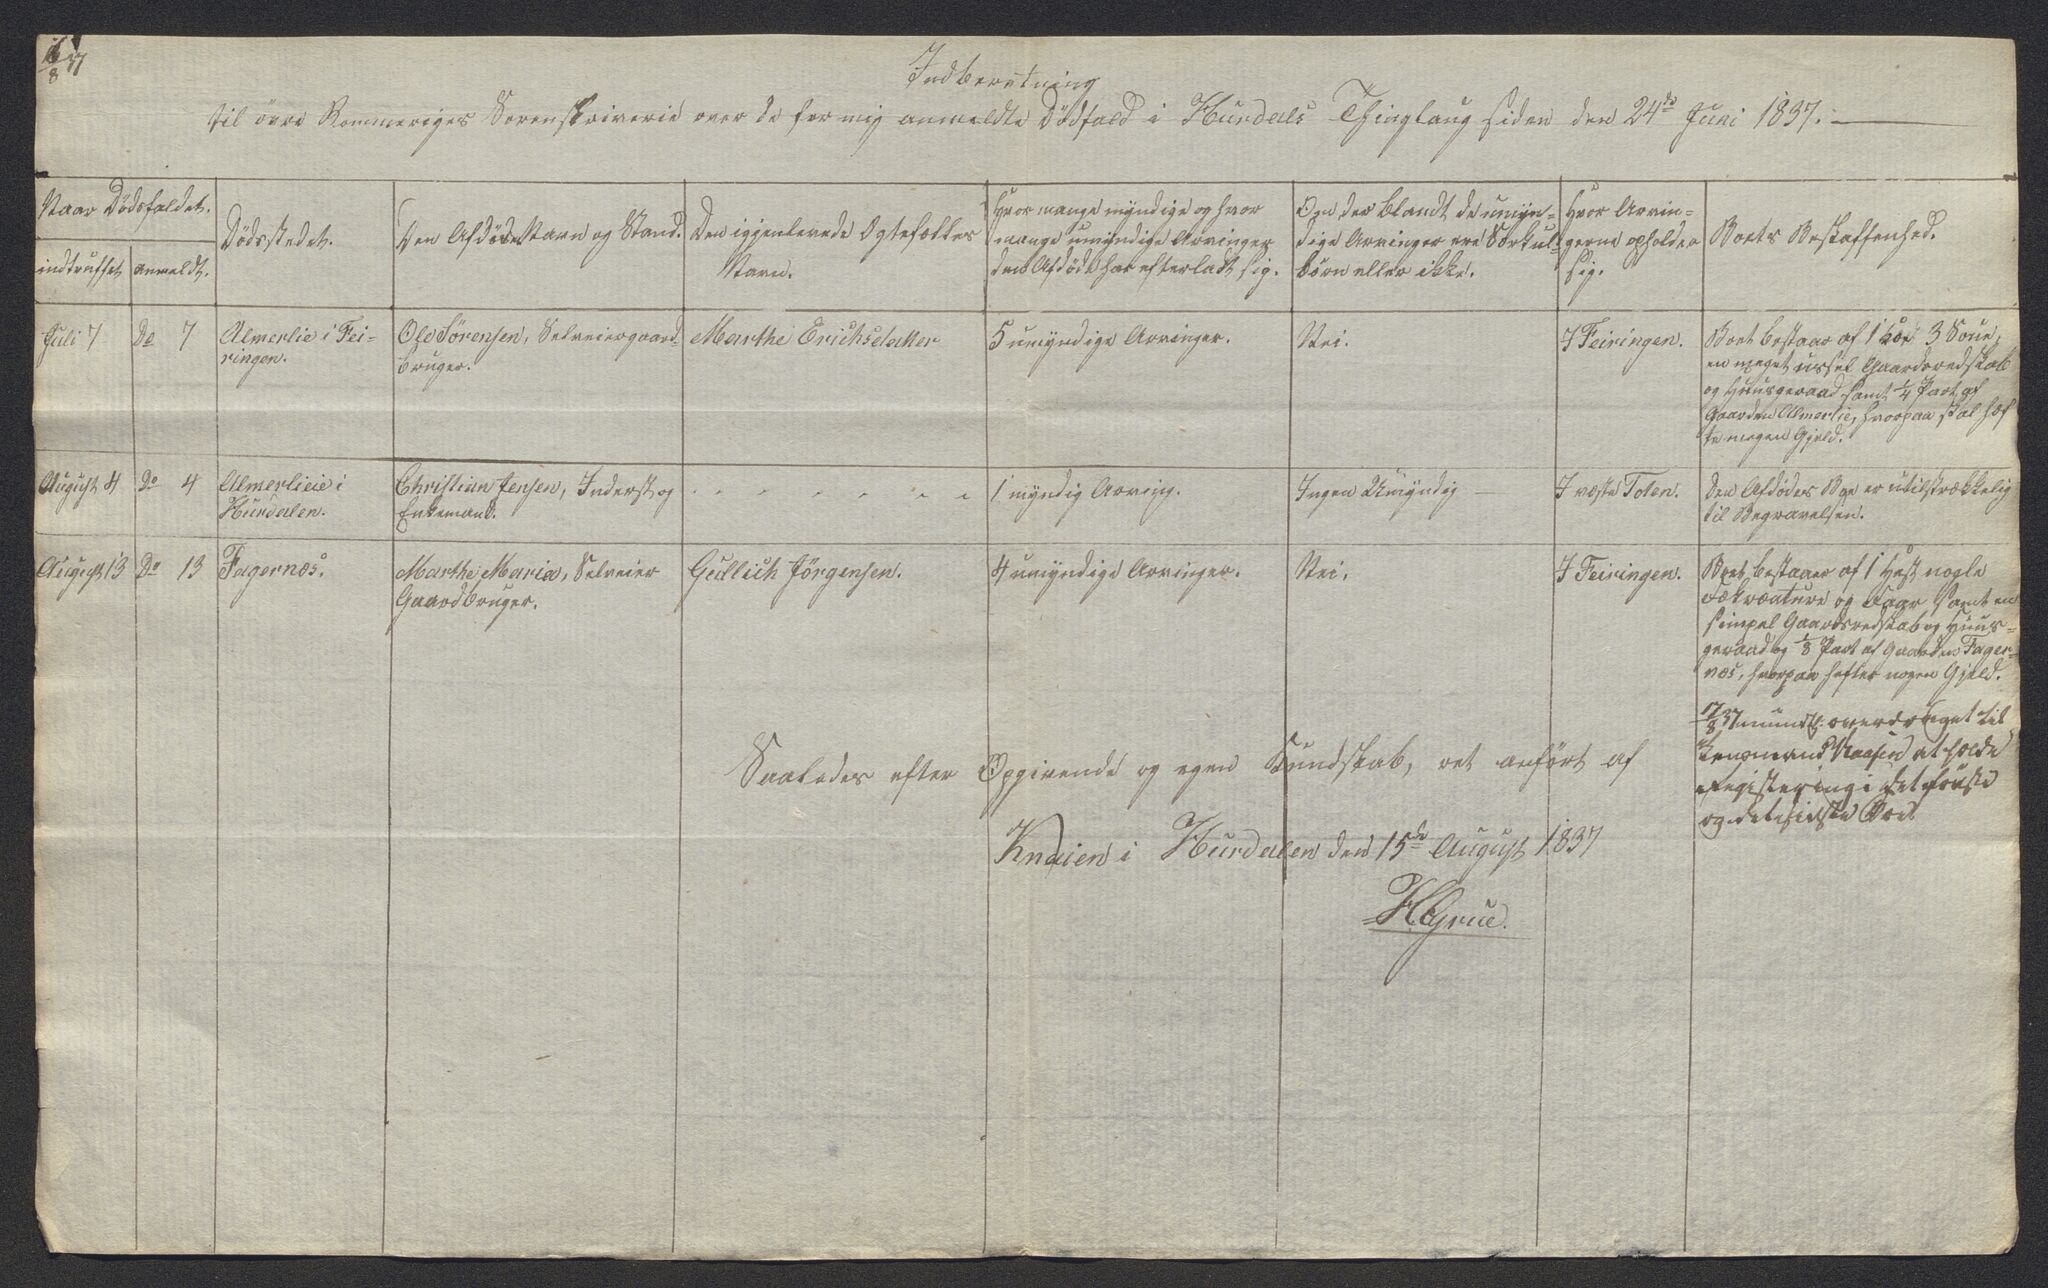 8 37
Indberetning
til övre Rommeriges Sorenskriverie over de for mig anmeldte Dödsfald i Hurdals Thinglaug siden den 24de Juni 1837.
Naar Dödsfaldet.
indtruffet
anmeldt.
Dödsstedet.
Den Afdödes Navn og Stand.
Den igjenlevende Egtefælles
Navn.
Hvor mange myndige og hvor
mange umyndige Arvinger
den Afdöde har efterladt sig.
Om der blandt de umyn-
dige Arvinger ere Særkul-
börn eller ikke.
Hvor Arvin-
gerne opholder
sig.
Boets Beskaffenhed.
Juli 7
Do 7
Almerlie i Fei-
ringen.
Ole Sörensen, Selveiergaard-
bruger.
Marthe Erichsdatter
5 umyndige Arvinger.
Nei.
I Feiringen.
Boet bestaar af 1 Koe 3 Soue,
en meget ussel Gaardsredskab
og Huusgeraad samt 1/4 Part af
Gaarden Almerlie, hvorpaa skal hæf
te megen Gjeld.
August 4
Do 4
Almerlieie i
Hurdalen.
Christian Jensen, Inderst og
Enkemand.
1 myndig Arving.
Ingen Umyndig
I vestre Toten.
Den Afdödes Boe er utilstrækkelig
til Begravelsen.
August 13
Do 13
Fagernæs.
Marthe Maria, Selveier
Gaardbruger.
Gullich Jörgensen.
4 umyndige Arvinger.
Nei.
I Feiringen.
Boet bestaaer af 1 Hest nogle
og Faar samt en
simpel Gaardsredskab og Huus-
geraad og 1/8 Part af Gaarden Fager-
næs, hvorpaa hefter nogen Gjeld.
17/8 37 mundtl: overdraget til
Lensmand at holde
Registering i det förste
og det sidste Boe.
Saaledes efter Opgivende og egen Kundskab, ret anfört af
Knaien i Hurdalen den 15de August 1837
HGrue.